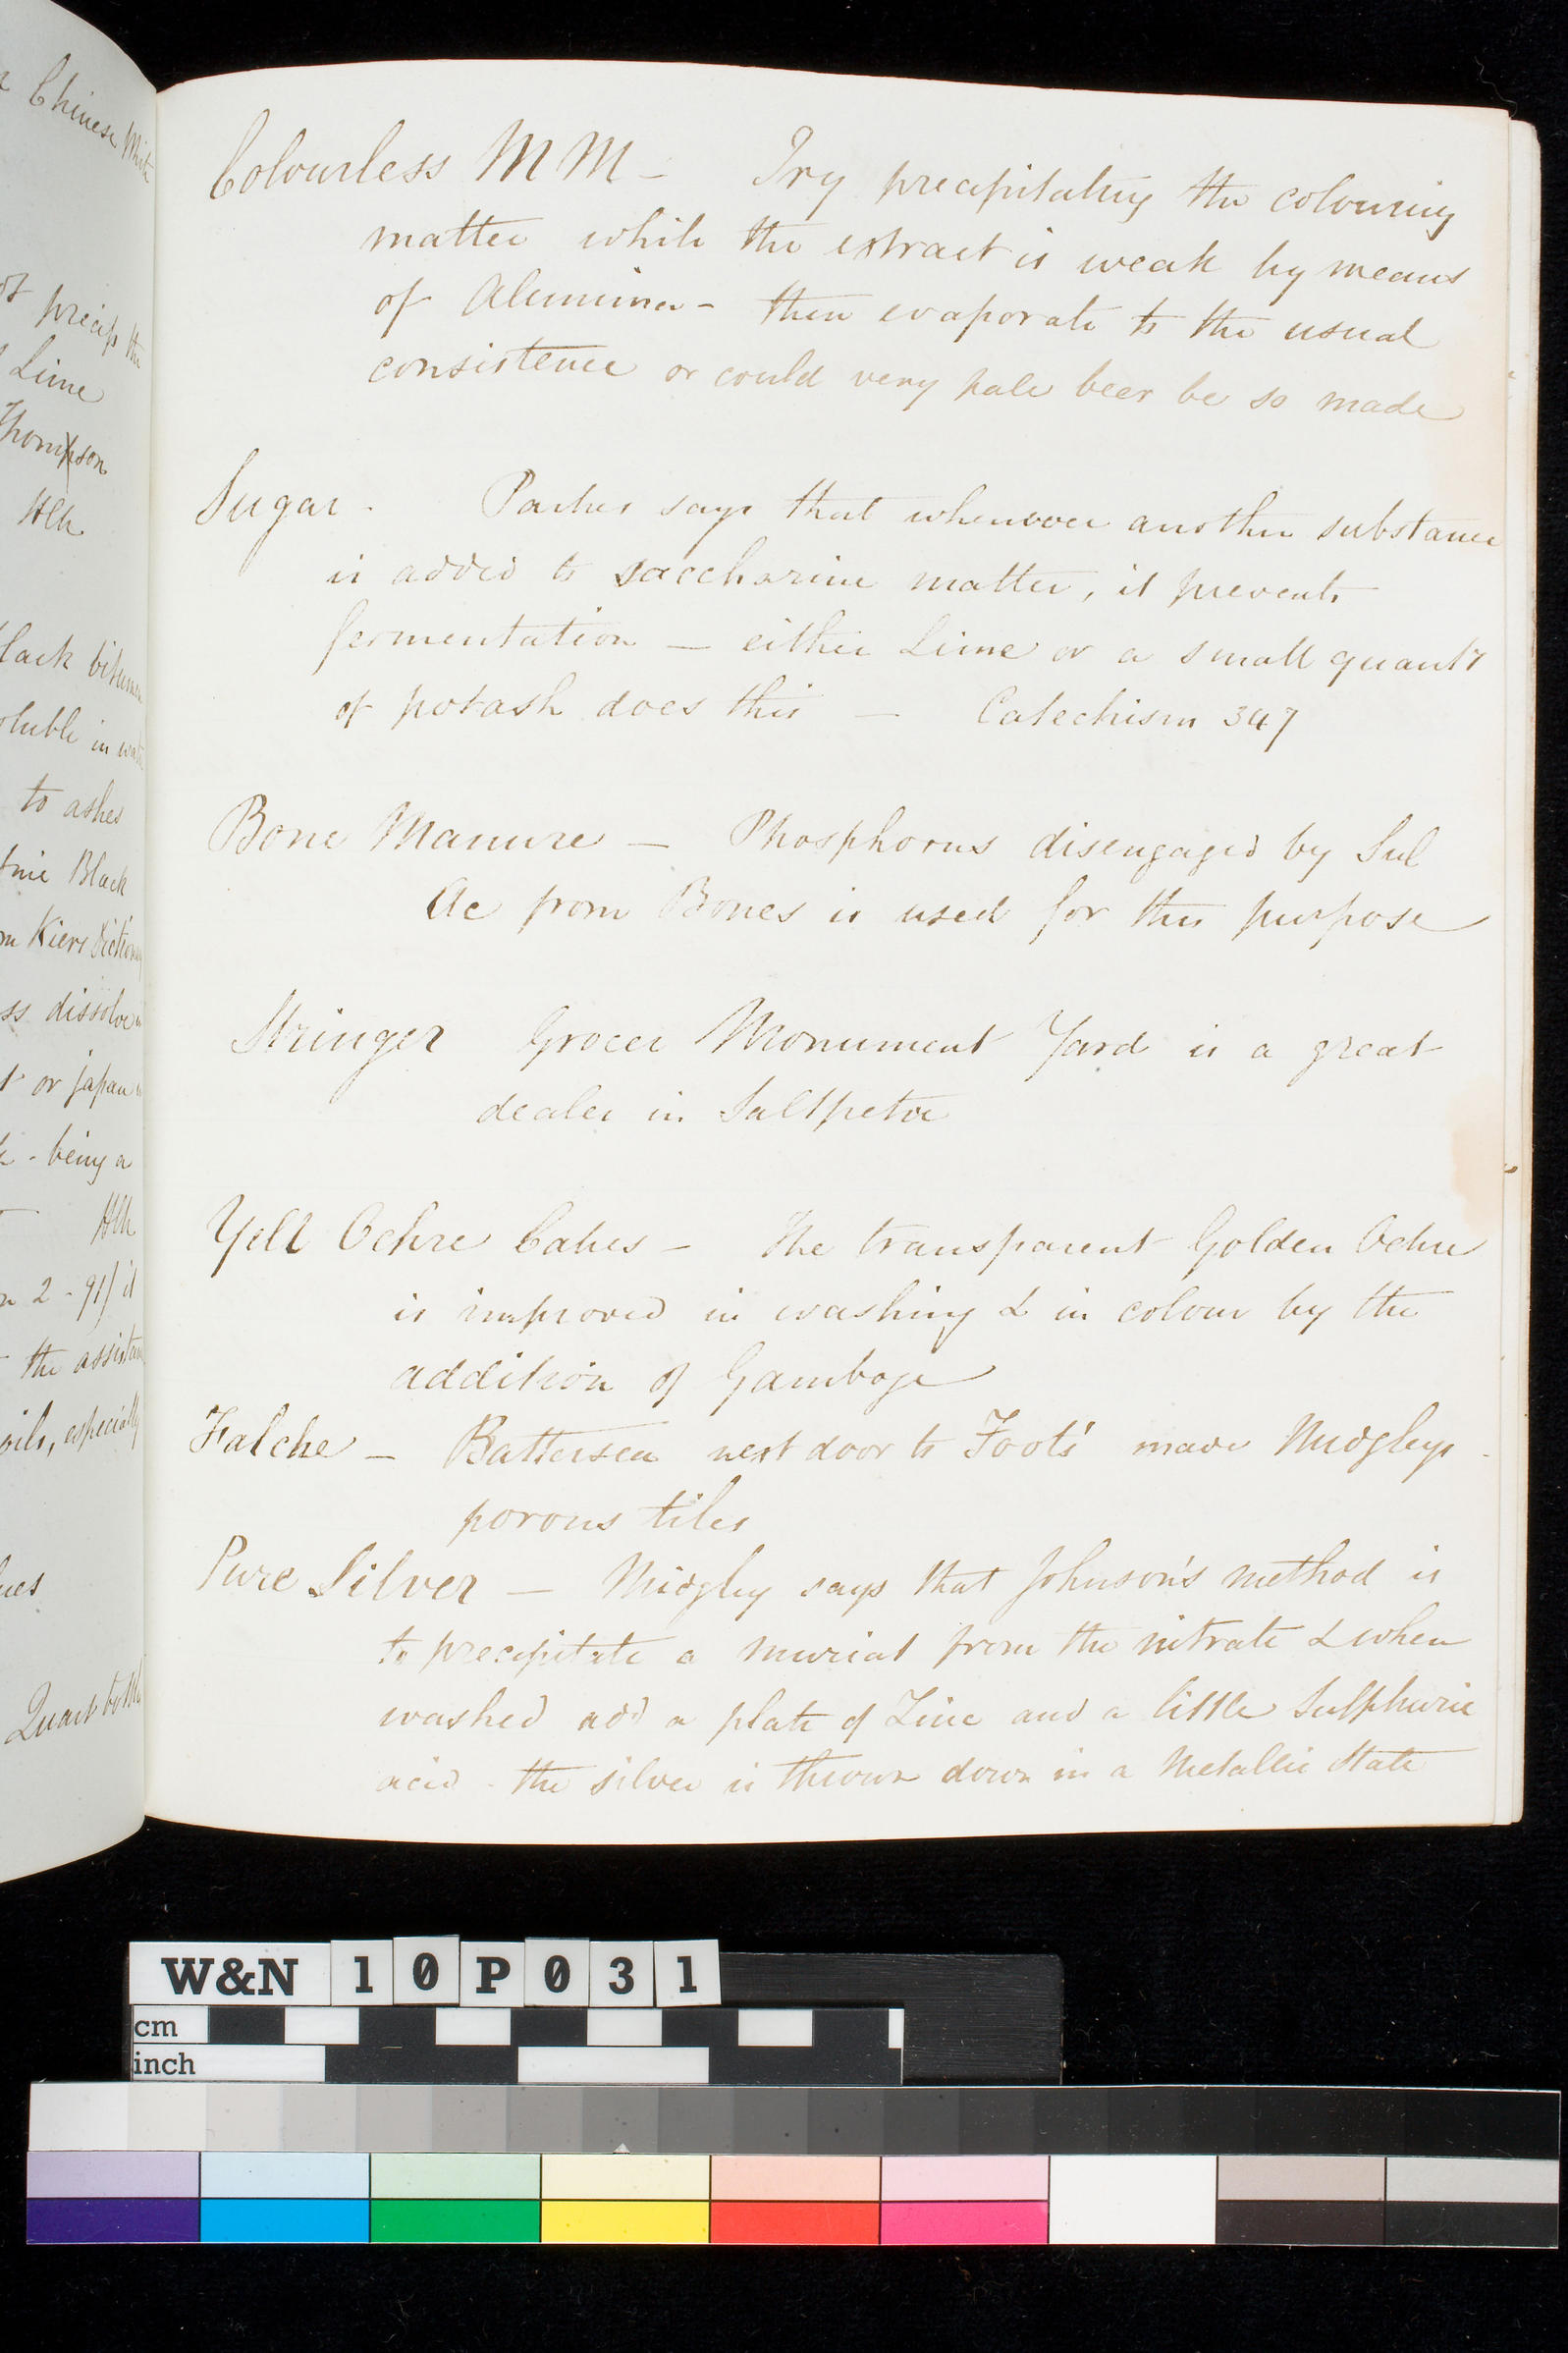 Chinese White
precip the
Lime
Thompson
HCh
black bitumen
soluble in water
to ashes
Black
Kiers Dictionary
dissolve
or japan
- being a
HCh
2 - 91) it
the assistan
oils, especially
Quart bottle
Colourless M M - Try precipitating the colouring
matter while the extract is weak by means
of Alumina - then evaporate to the usual
consistence or could very pale beer be so made
Sugar - Parkes says that whenever another substance
is added to saccharine matter, it prevents
fermentation — either Lime or a small quanty
of potash does this — Catechism 347
Bone Manure — Phosphorus disengaged by Sul
Ac from Bones is used for this purpose
Stringer Grocer Monument Yard is a great
dealer in Saltpetre
Yell Ochre Cakes - The transparent Golden Ochre
is improved in washing & in colour by the
addition of Gamboge
Falche - Battersea next door to Foots' made Midgleys
porous tiles
Pure Silver — Midgley says that Johnson's method is
to precipitate a muriat from the nitrate & when
washed add a plate of Zinc and a little Sulphuric
acid - the silver is thrown down in a Metallic State
W&N 10P031
cm
inch